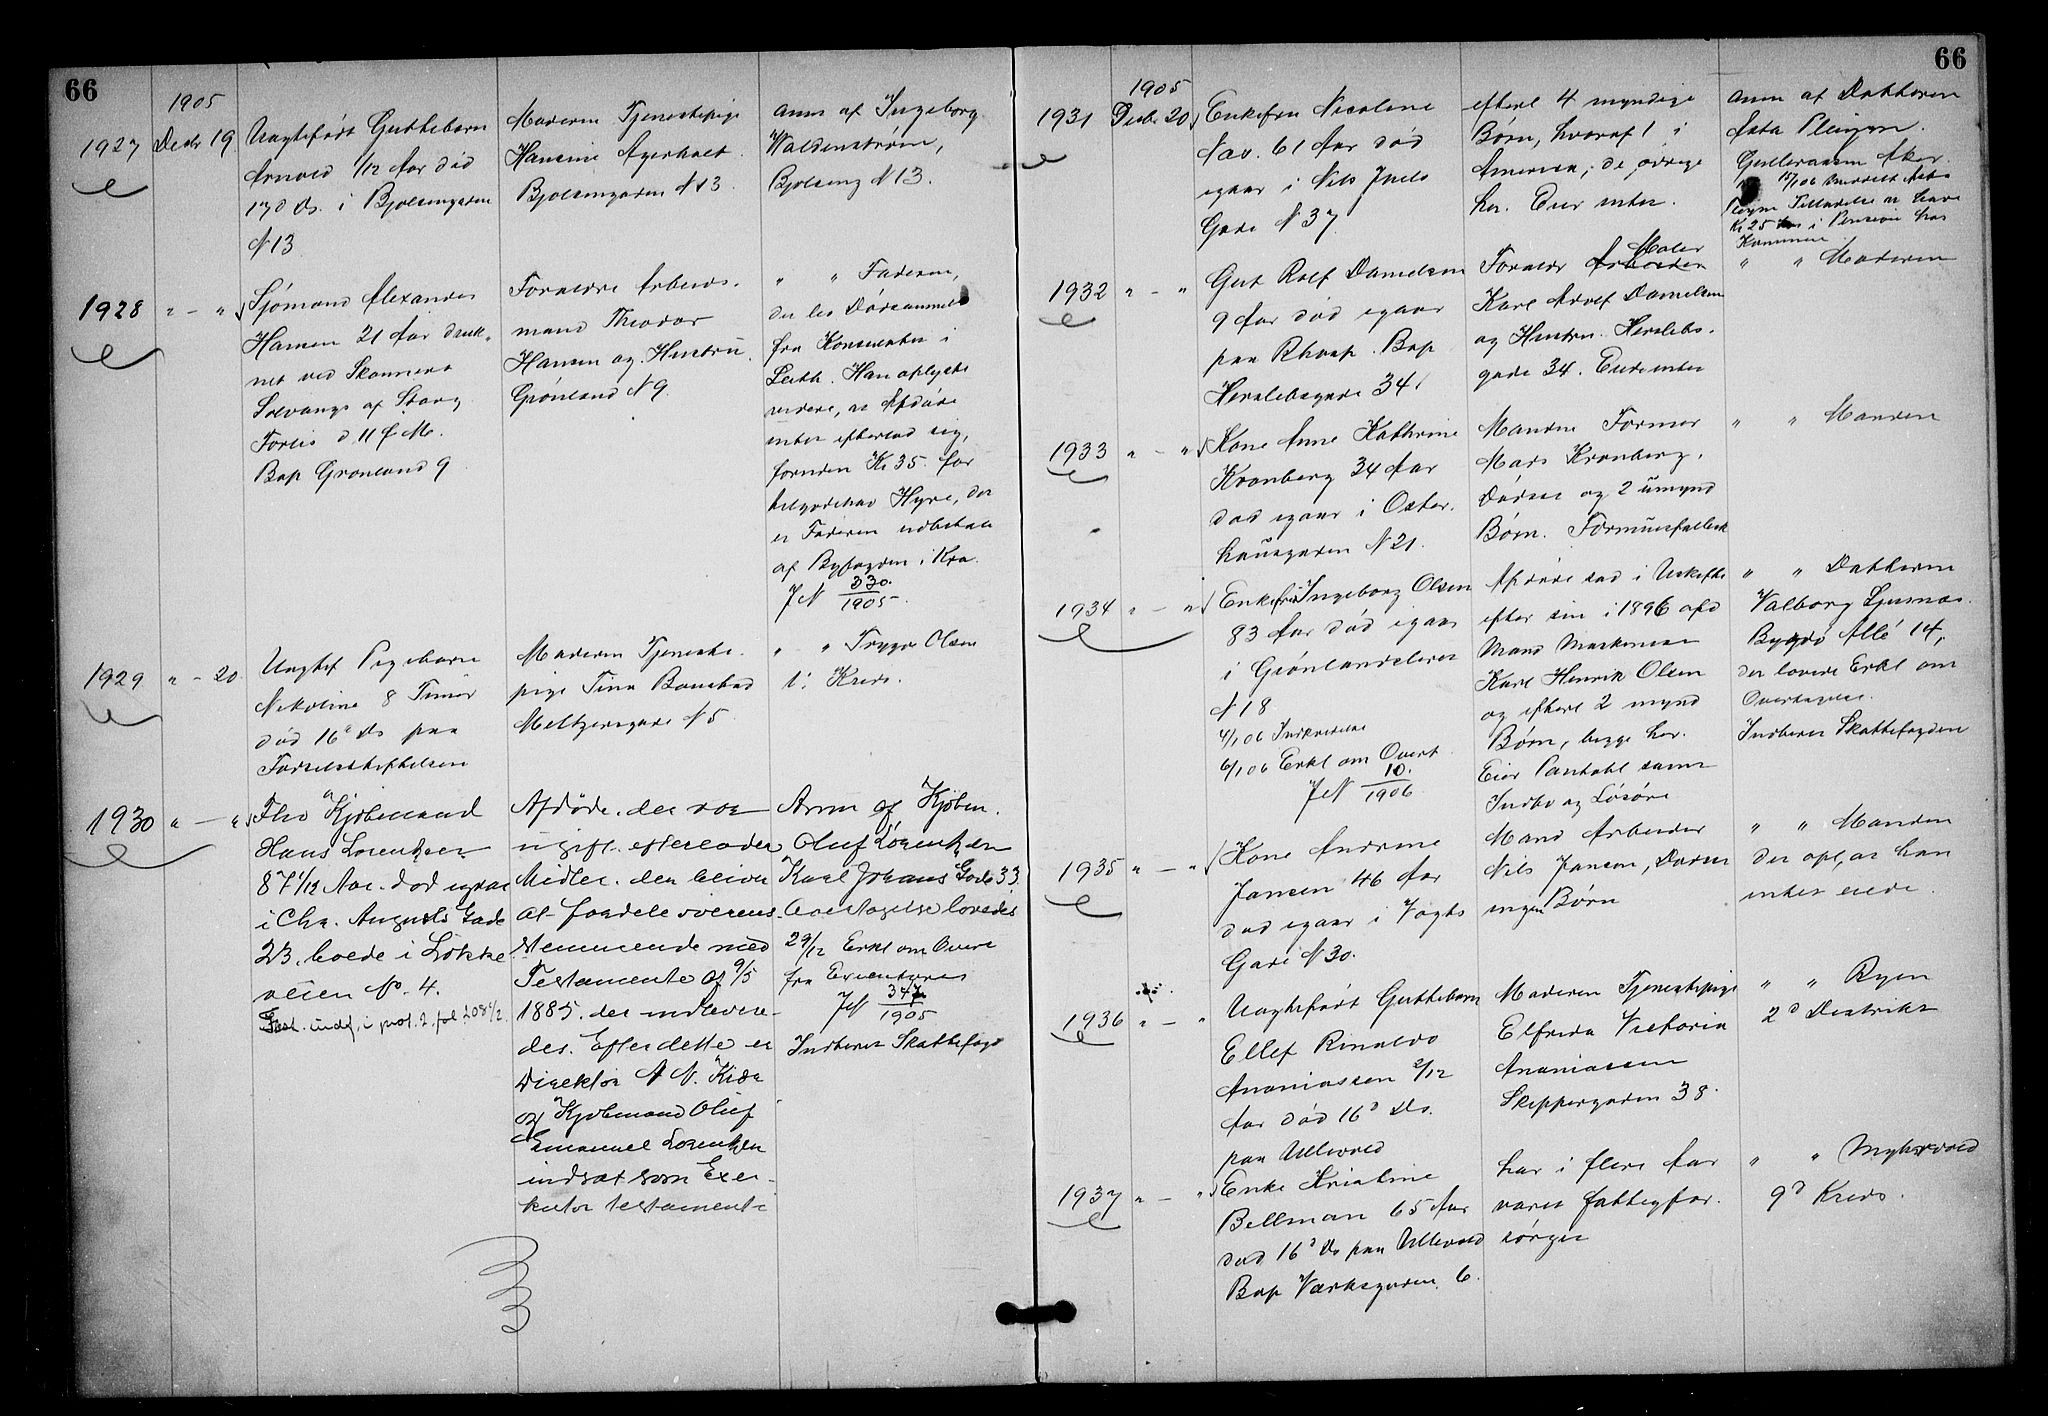 66
1905
1927 Decbr 19.
Uægtefødt Guttebarn
Arnold 1/12 Aar død
17d ds. i Bjølsengaden
N 13
Moderen Tjenestepige
Hansine Agerholt
Bjølsengaden N 13.
Anm af Ingeborg
Waldenstrøm,
Bjølseng N 13.
1928 " - "
Sjømand Alexander
Hansen 21 Aar druk-
net ved Skonnert
Solvangs af Stavg
Forlis d 11 f M.
Bop Grønland 9
Forældre Arbeids-
mand Theodor
Hansen og Hustru
Grønland N 9.
" " Faderen,
der lev Dødsanmeld
fra Konsulatet i
Leith. Han oplyste
videre, at Afdøde
intet efterlod sig,
foruden Kr 35. for
tilgodehav Hyre, der
er Faderen udbetalt
af Byfogden i Kra.
JN 330.
1905.
1929 " - 20
Uægtef Pigebarn
Nikoline 8 Timer
død 16d ds paa
Fødselsstiftelsen
Moderen Tjeneste-
pige Tina
Meltzersgade N 5
" " Trygve Olsen
1. Kreds.
1930 " - "
Fhv Kjøbmand
Hans Lorentzen
87 1/12 Aar. død igaar
i Chr. Augusts Gade
23, boede i Løkke-
veien No. 4.
Test. indf. i prot. 2, fol 208 1/2.
Afdøde. der var
ugift. efterlader
Midler. der bliver
at fordele overens-
stemmende med
Testamente af 9/5
1885. der indlevere-
des. Efter dette er
Direktør N. N. Kiær
og Kjøbmand Oluf
Emanuel Lorentzen
indsat som Exe-
kutor testamenti
Anm af Kjøbm.
Oluf Lorentzen
Karl Johans Gade 33.
Overtagelse lovedes
29/12 Erkl om Overt
fra Executores
JN 347
1905
Indberet Skattefogd
66
1905
1931 Decbr 20
Enkefru Nicoline
Nav. 61 Aar død
igaar i Nils Juels
Gade N 37
efterl 4 myndige
Børn, hvoraf 1 i
Amerika, de øvrige
her. Eier intet.
Anm af Datteren
Asta
Aker.
Kr 25 i Pension hos
Kommunen
1932 " - "
Gut Rolf Danielsen
9 Aar død igaar
paa Rhosp. Bop
Herslebsgade 34.
Forældr Arbeider Maler
Karl Adolf Danielsen
og Hustru. Herslebs-
gade 34. Eiede intet
" " Moderen
1933 " - "
Kone Anne Kathrine
Kronberg 34 Aar
død igaar i Oster-
hausgaden N 21.
Manden Former
Mads Kronberg.
Dødsei og 2 umynd
Børn. Formuesfælleski
" " Manden
1934 " - "
Enkefru Ingeborg Olsen
83 Aar død igaar
i Grønlandsleret
N 18
4/1 06
6/1 06 Erkl om Overt
JN 10.
1906
Afdøde sad i Uskifte
efter sin i 1896 afd
Mand Maskinist
Karl Henrik Olsen
og efterl 2 mynd
Børn, begge her.
Eier Panteobl samt
Indbo og Løsøre
" " Datteren
Valborg
Bygdø Allé 14,
der lovede Erkl om
Overtagelse.
Indberet Skattefogden
1935 " - "
Kone Andrine
Jansen 46 Aar
død igaar i Vogts
Gade N 30.
Mand Arbeider
Nils Jansen,
ingen Børn
" " Manden
der opl, at han
intet eiede.
1936 " - "
Uægtefødt Guttebarn
Ellef Rinaldo
Ananiassen 2/12
Aar død 16d ds.
paa Ullevold
Moderen Tjenestepige
Elfrida Victoria
Ananiassen
Skippergaden 38.
" " Ryen
2d Distrikt
1937 " - "
Enke Kristine
Bellman 65 Aar
død 16d ds paa Ullevold
Bop Værksgaden 6.
har i flere Aar
været fattigfor-
sørget
" " Myhrvold
9d Kreds.